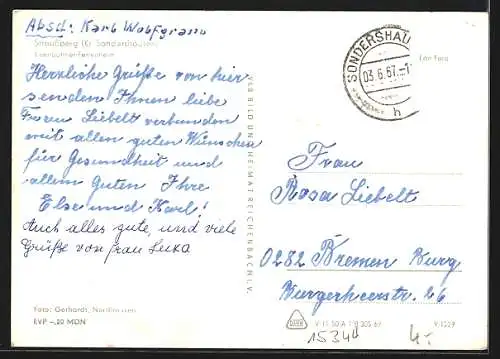 Absd: Karl Wolfgram
Straußberg (Kr. Sondershausen)
Eisenbahner-Ferienheim
Herzliche Grüße von hier
senden Ihnen liebe
Frau Liebelt verbunden
mit allen guten Wünschen
für Gesundheit und
allem Guten Ihre
Else und Karl!
Auch alles gute, und viele
Grüße von Frau
Foto: Gerhardt, Nordhausen
EVP –,20 MDN
VEB BILD UND HEIMAT REICHENBACH I. V.
SONDERSHAU
03.6.67.-1
h
Frau
Rosa Liebelt
0282 Bremen Burg
Burgerheerstr. 26
V 11 50 A 1/B 305/67
V 1529
15344
4,-